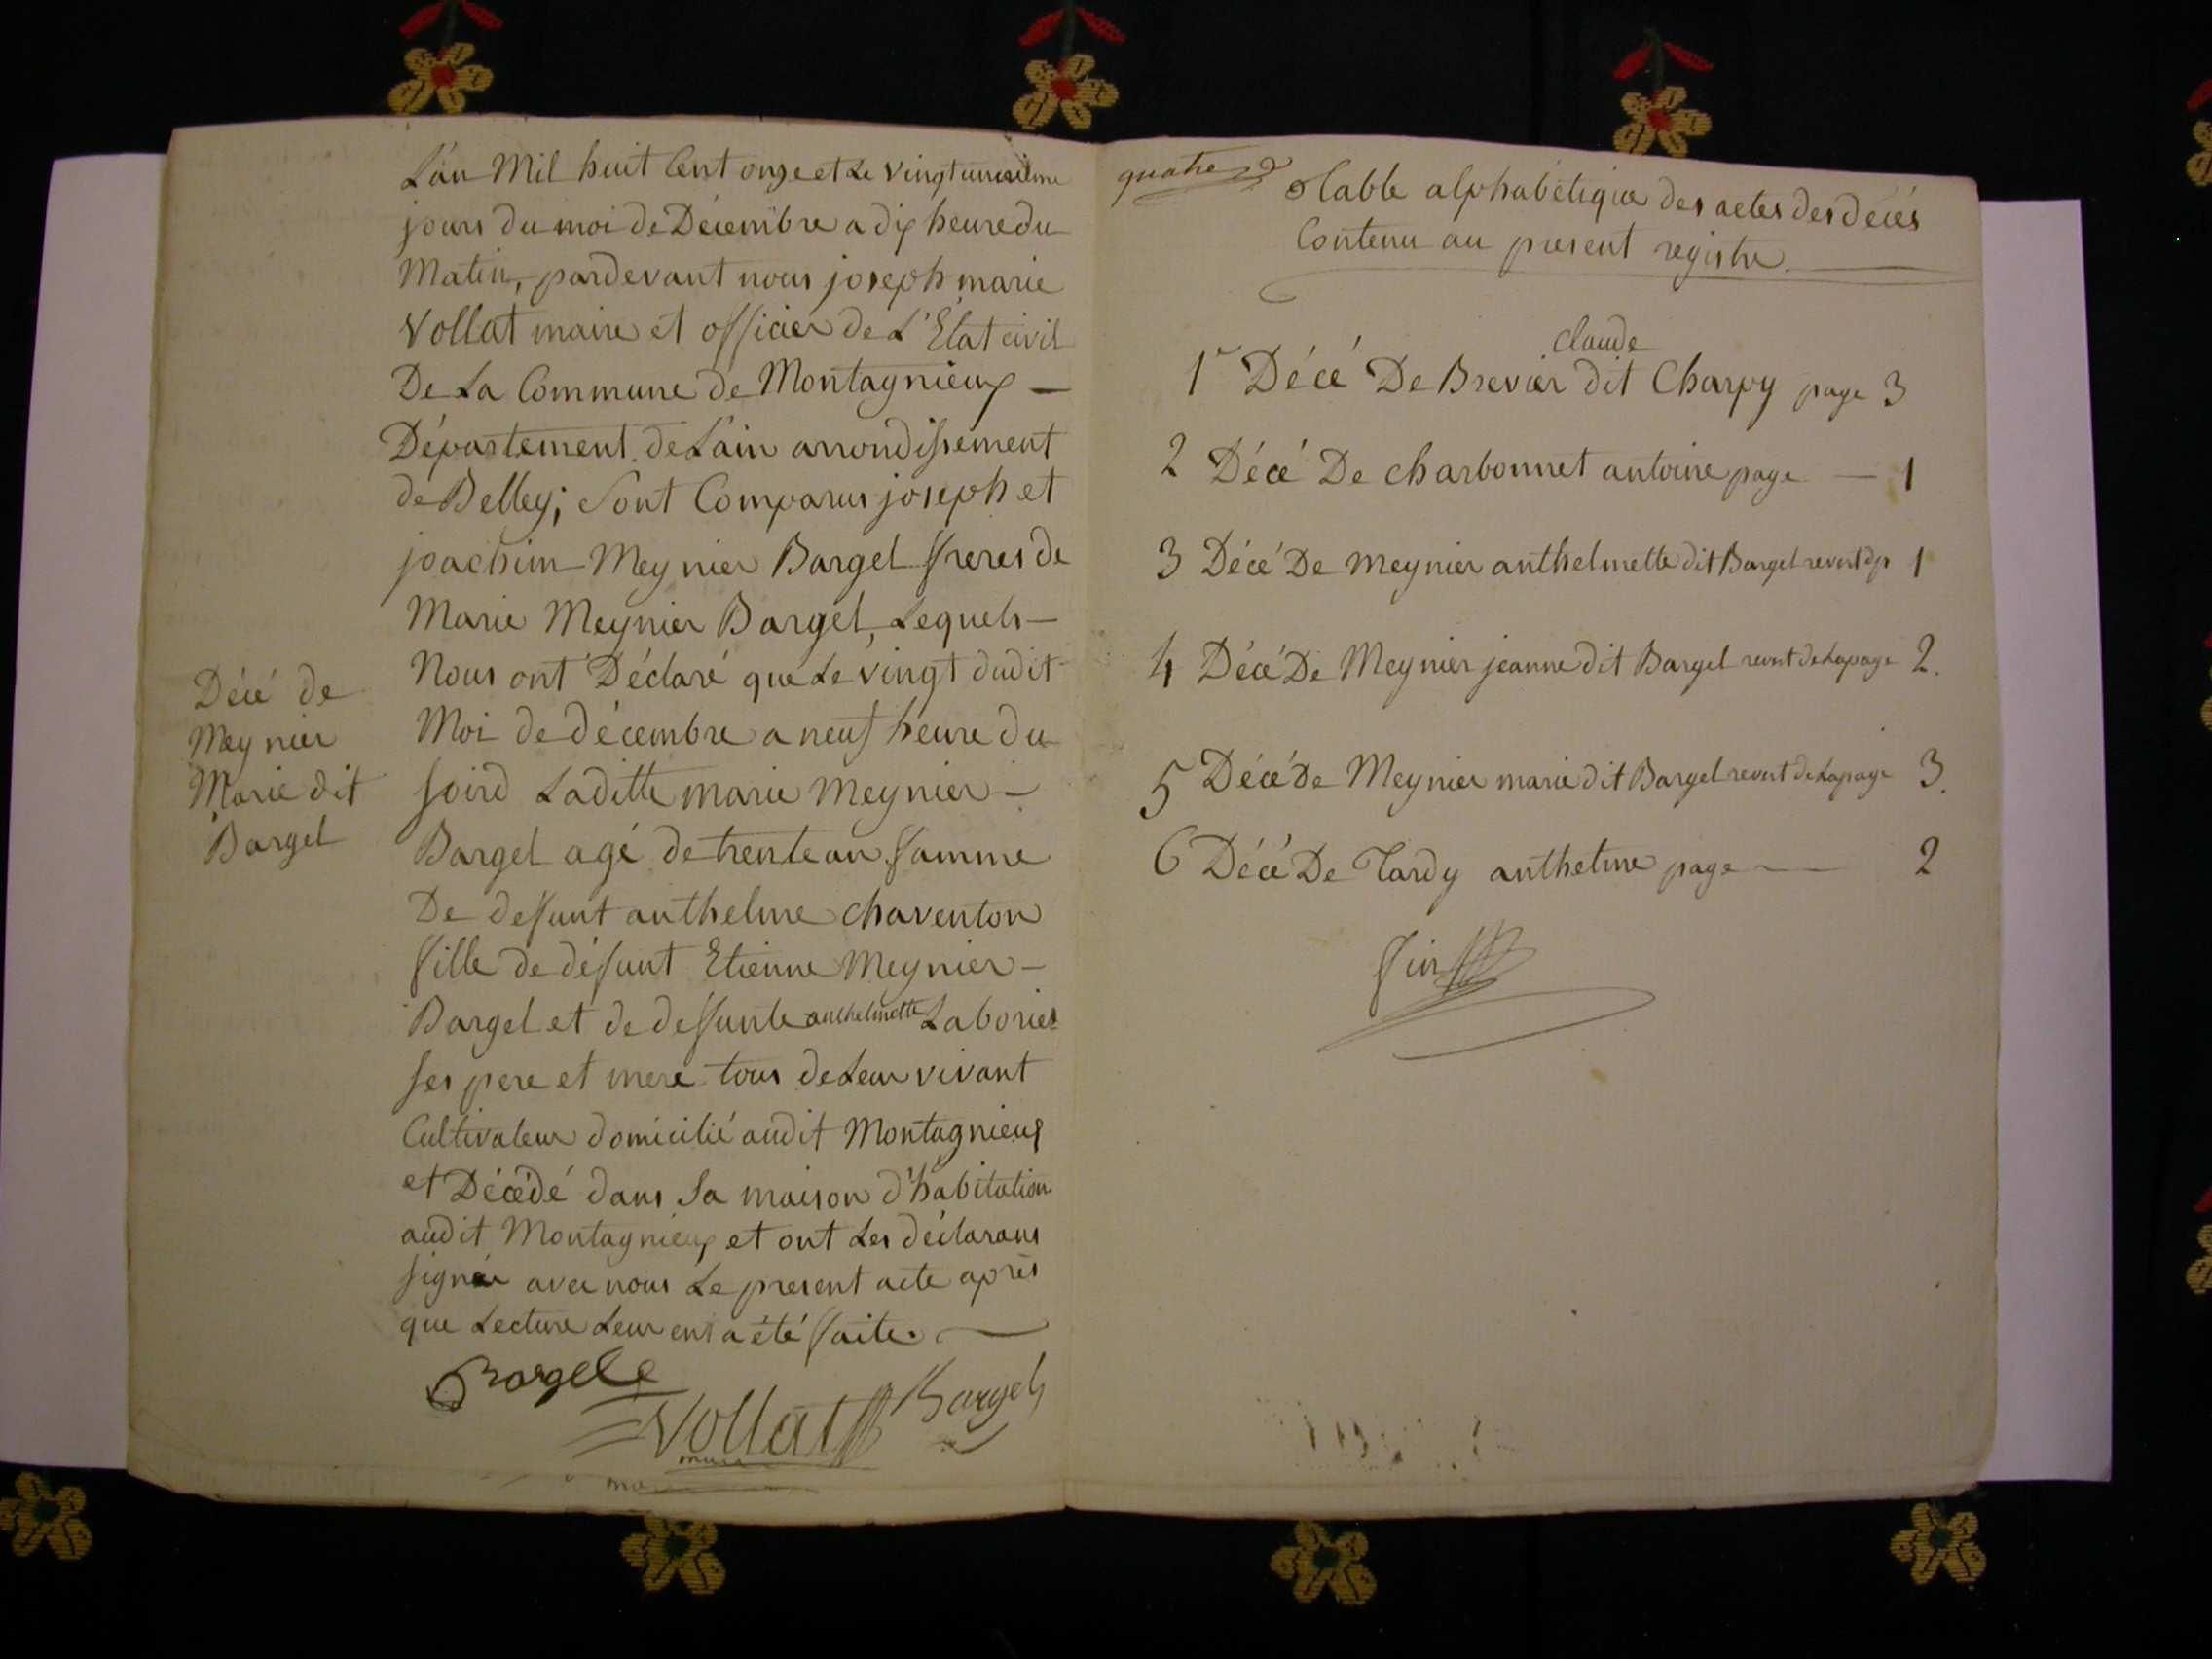 L'an Mil huit Cent onze et Le vingt unieme
jours du moi de Décembre a dix heure du
Matin, pardevant nous joseph marie
Vollat maire et officier de L'Etat civil
De La Commune de Montagnieux —
Département de L'ain arrondissement
de Belley; Sont Comparus joseph et
joachim Meynier Bargel freres de
Marie Meynier Bargel, Lequels —
Nous ont Déclaré que Le vingt dudit
Moi de décembre a neuf heure du
soird Laditte marie Meynier —
Bargel agé de trente an famme
De defunt anthelme chaventon
fille de défunt Etienne Meynier —
Bargel et de deffunte anthelmette Laborier
ses pere et mere tous de Leur vivant
Cultivateur domicilié audit Montagnieux
et Décédé dans sa maison d'habitation
audit Montagnieux et ont Les déclarans
signée avec nous Le present acte après
que Lecture Leur en a été faite. —
Décé de
Meynier
Marie dit
Bargel
Bargel
Vollat Bargel
quatre
table alphabétique des actes des décés
Contenu au present registre.
claude
1r Décé De Brevier dit Charpy page 3
2 Décé De charbonnet antoine page — 1
3 Décé De meynier anthelmette dit Bargel revert dp 1
4 Décé De Meynier jeanne dit Bargel revert de Lapage 2.
5 Décé De Meynier marie dit Bargel revert de Lapage 3.
6 Décé De Tardy anthelme page — 2
fin